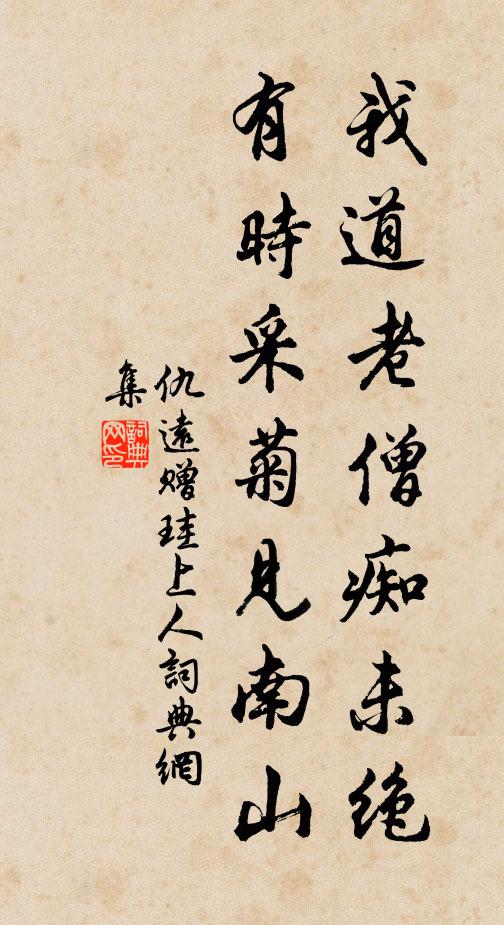 我道老僧痴未绝
有時采菊見南山
仇遠贈珪上人詞典網
集
詞典
网印